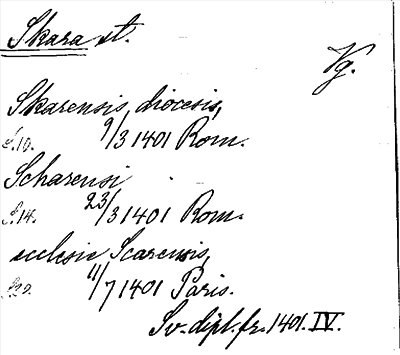 Skara st.
Vg.
Skarensis, diocesis,
S.10. 9/3 1401 Rom.
Scharensi
S.14. 23/3 1401 Rom.
ecclesie Scarensis,
S.20. 11/7 1401 Paris.
Sv. dipl. fr. 1401. IV.